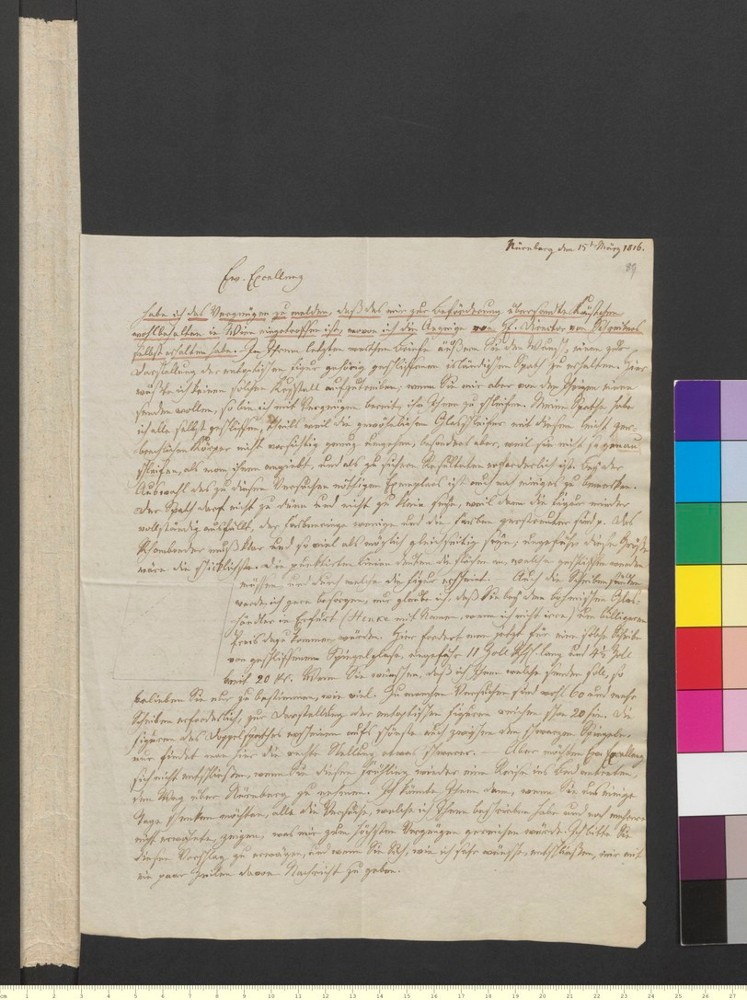 Nürnberg den 15t März 1816.
89
Ew. Excellenz
habe ich das Vergnügen zu melden, daß das mir zur Beförderung übersandte Kästchen
wohlbehalten in Wien eingetroffen ist, wovon ich die Anzeige von H. Director von
selbst erhalten habe. In Ihrem letzten werthen Briefe äußern Sie den Wunsch, einen zur
Darstellung der entoptischen Figur gehörig geschliffenen isländischen Spath zu erhalten. Hier
wüßte ich keinen solchen Krystall aufzutreiben; wenn Sie mir aber von den Ihrigen einen
senden wollen, so bin ich mit Vergnügen bereit, ihn Ihnen zu schleifen. Meine Spathe habe
ich alle selbst geschliffen, theils weil die gewöhnlichen Glasschleifer mit diesem leicht zer-
brechlichen Körper nicht vorsichtig genug umgehen, besonders aber, weil sie nicht so genau
schleifen, als man ihnen angiebt, und als zu sichern Resultaten erforderlich ist. Bey der
Auswahl des zu diesen Versuchen nöthigen Exemplars ist auch noch einiges zu bemerken.
Der Spath darf nicht zu dünn und nicht zu klein seyn, weil dann die Figur minder
vollständig ausfällt, der Farbenringe wenige und die Farben zerstreuter sind. Das
Rhomboeder muß klar und so viel als möglich gleichseitig seyn; ungefähr diese Größe
wäre die schicklichste. Die punktirten Linien deuten die Flächen an, welche geschliffen werden
müssen und durch welche die Figur erscheint. – Auch die Scheibensäulen
werde ich gern besorgen, nur glaube ich, daß Sie bey dem böhmischen Glas-
händler in Erfurt (Henke mit Namen, wenn ich nicht irre) um billigeren
Preis dazu kommen würden. Hier fordert man jetzt für eine solche Scheibe
von geschliffenem Spiegelglase, ungefähr 11 Zoll lang und 4½ Zoll
breit 20 kr. Wenn Sie wünschen, daß ich Ihnen welche senden soll, so
belieben Sie nur zu bestimmen, wie viel. Zu manchen Versuchen sind wohl 60 und mehr
Scheiben erforderlich, zur Darstellung der entoptischen Figuren reichen schon 20 hin. Die
Figuren des Doppelspathes erscheinen aufs schönste auch zwischen den schwarzen Spiegeln,
nur findet man hier die rechte Stellung etwas schwerer. – Aber möchten Ew. Excellenz
sich nicht entschließen, wenn Sie diesen Frühling wieder eine Reise ins Bad antreten,
den Weg über Nürnberg zu nehmen. Ich könnte Ihnen dann, wenn Sie uns einige
Tage schenken möchten, alle die Versuche, welche ich Ihnen beschrieben habe und noch mehrere
nicht erwähnte, zeigen, was mir zum höchsten Vergnügen gereichen würde. Ich bitte Sie
diesen Vorschlag zu erwägen, und wenn Sie sich, wie ich sehr wünsche, entschließen, mir mit
ein paar Zeilen davon Nachricht zu geben.